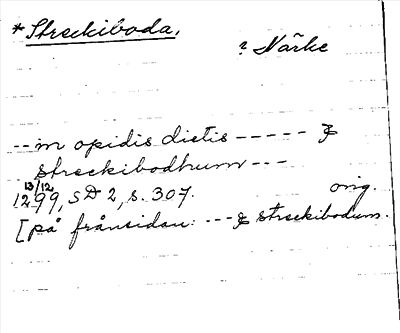 *Streckiboda.
? Närke
--- in opidis dictis ----- &
streckibodhum ---
13/12
1299, SD 2, s. 307. orig.
[på frånsidan: --- & streckibodum.